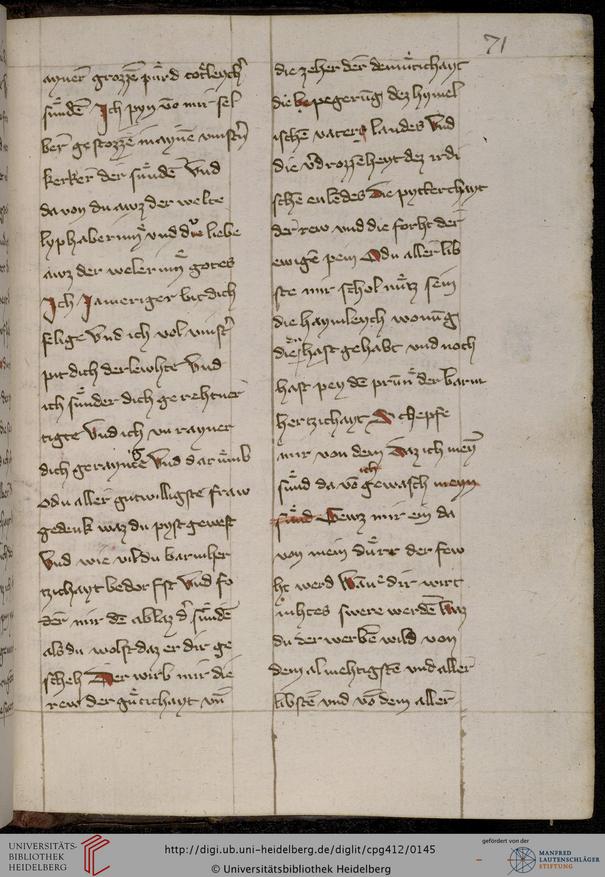 71
ayner grozzen pürd totleycher
sünden Ich pyn vo mir sel
ber gestozzen in aynen vinstern
kerker der sünden Vnd
da von du awz der welte
lyphaberinn vnd die liebe
awz der welerinn gotes
Ich Iameriger bit dich
selige Vnd ich vol vinster
pit dich derlewhte Vnd
ich sünder dich gerehtuer
tigte Vnd ich vnrayner
dich geraynte Vnd darümb
o du aller gutwilligste fraw
gedenk waz du pyst gewest
Vnd wie vil du barmher
tzichayt bedorfst Vnd fo
der mir den ablaz der sünden
als du wolst daz er dir ge
scheh Der wirb mir die
rew der gütichayt vnd
die zeher der demütichayt
die bepegerung dez hymel
ischen vaters landes Vnd
die verdrozzenheyt dez irdi
schen enledes Die pytterchayt
der rew vnd die forht der
ewigen pein O du aller lib
ste mir schol nütz sein
die haymleych wonung
die du hast gehabt vnd noch
hast pey dem prunn der barm
hertzichayt Schepfe
mir von dem Daz ich meyn
sünd da von ich gewasch meyn
sünd Bewz mir ein da
von mein dürr der few
ht werd Wann dir wirt
nihtes swere werden Waz
du der werben wild von
dem almehtigsten vnd aller
libsten vnd von dem aller
UNIVERSITÄTS-
BIBLIOTHEK
HEIDELBERG
http://digi.ub.uni-heidelberg.de/diglit/cpg412/0145
© Universitätsbibliothek Heidelberg
gefördert von der
MANFRED
LAUTENSCHLÄGER
STIFTUNG